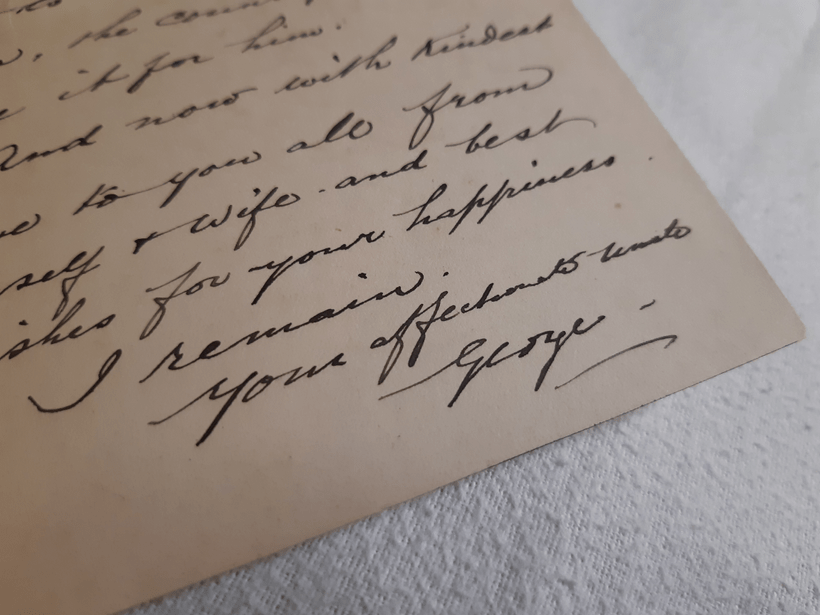 the
it for him.
And now with kindest
to you all from
self & wife. and best
shes for your happiness.
I remain.
Your affectionate
George.